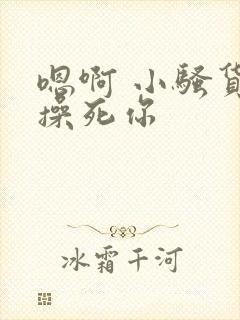 嗯啊 小骚货
操死你
冰霜千河